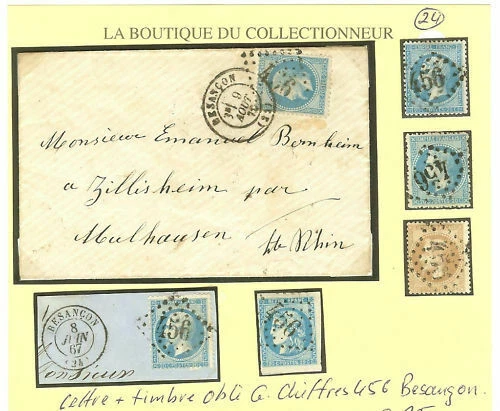 24
LA BOUTIQUE DU COLLECTIONNEUR
BESANÇON
9
AOUT
456
Monsieur Emanuel Bernheim
a Zillisheim par
Mulhausen
Ht Rhin
EMPIRE FRANC
456
456
BESANÇON
8
JUIN
67
(24)
456
456
Monsieur
Lettre + timbre obli G. Chiffres 456 Besançon.